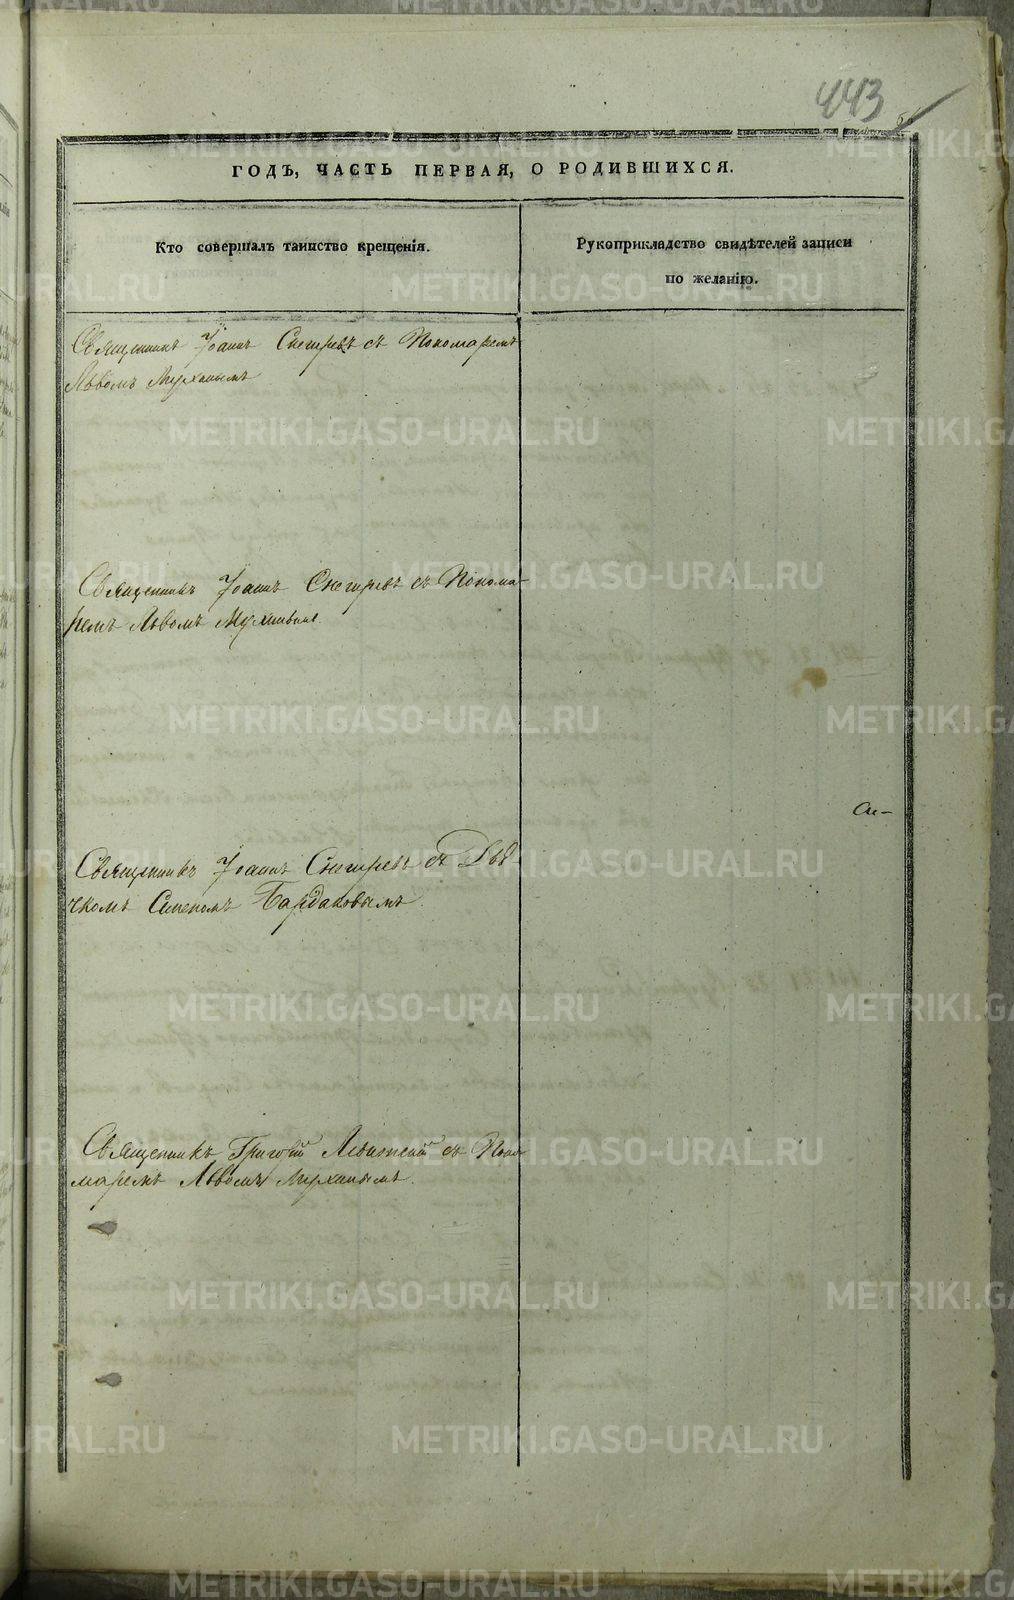 443
ГОДЪ, ЧАСТЬ ПЕРВАЯ, О РОДИВШИХСЯ.
Кто совершалъ таинство крещенія.
Рукоприкладство свидѣтелей записи
по желанію.
Священникъ Іоаннъ Снегиревъ съ Пономаремъ
Львомъ Мухинымъ
Священникъ Іоаннъ Снегиревъ съ Понома-
ремъ Львомъ
Священникъ Іоаннъ Снегиревъ съ Дья-
чкомъ Бардаковымъ.
Священникъ Григорій съ Поно
маремъ Львомъ Мухинымъ.
METRIKI.GASO-URAL.RU